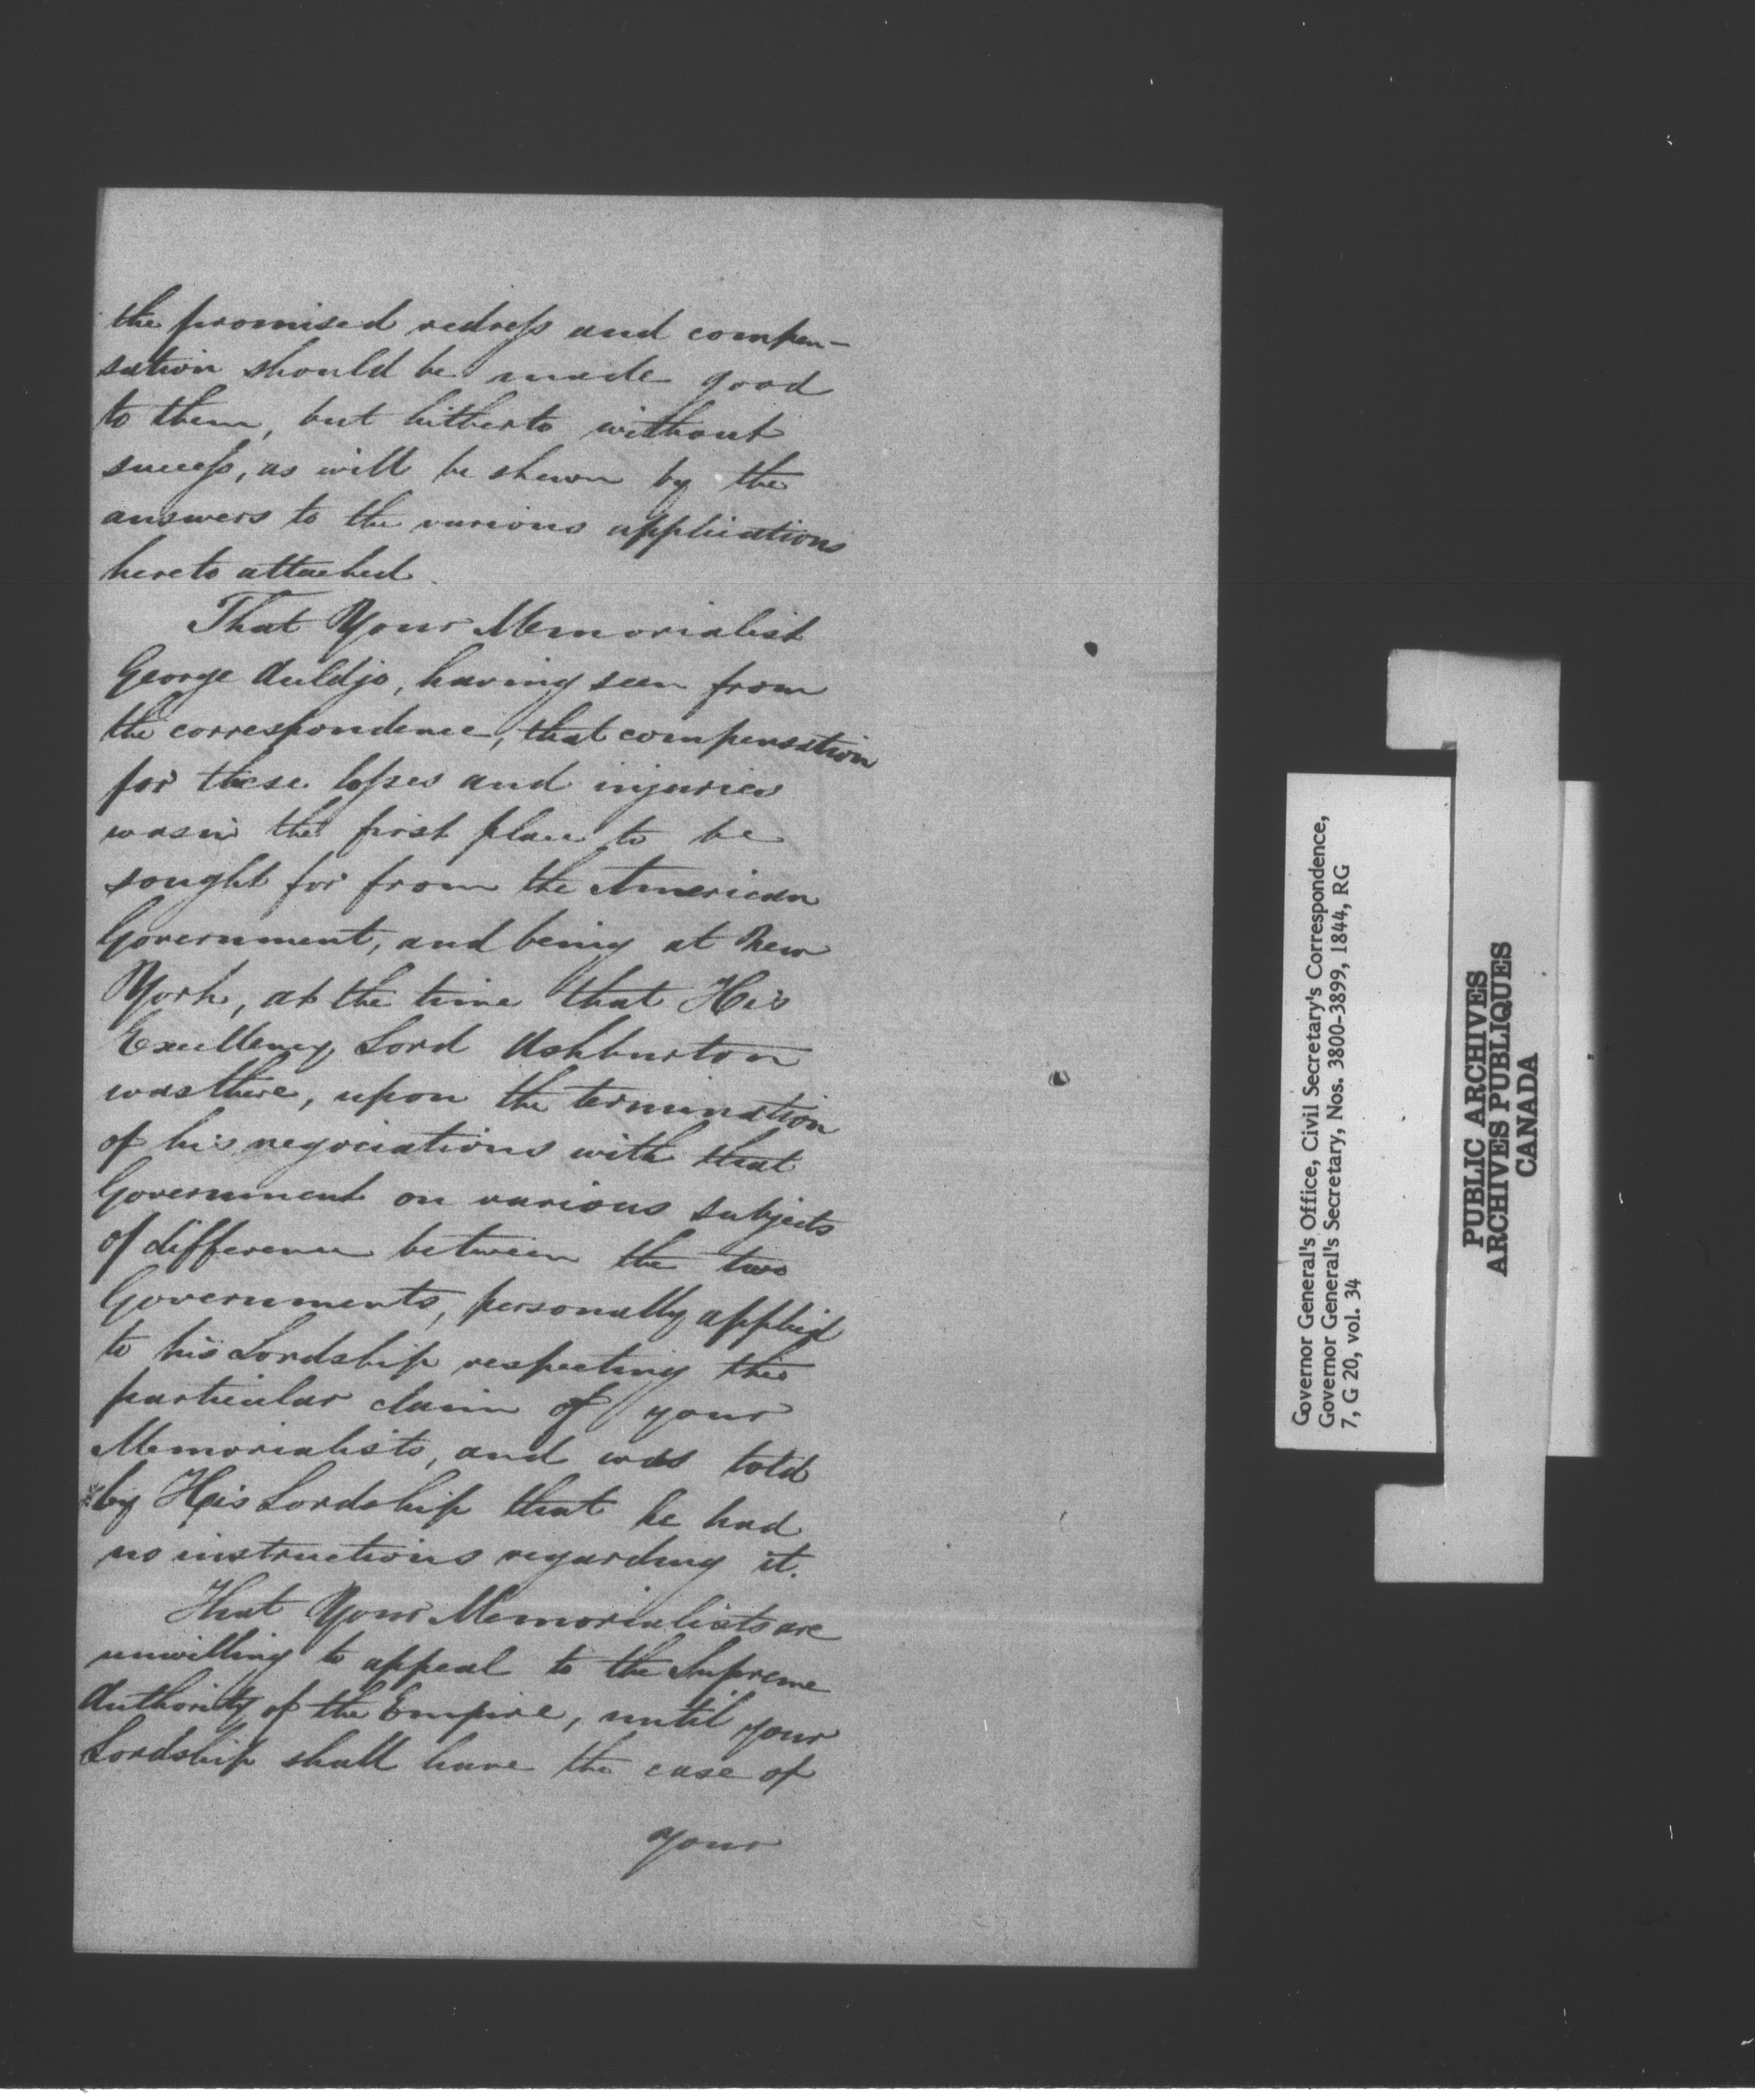 the promised redress and compen-
sation should be made good
to them, but hitherto without
success, as will be shewn by the
answers to the various applications
hereto attached.
That Your Memorialist
George Auldjo, having seen from
the correspondence, that compensation
for these losses and injuries
was in the first place to be
sought for from the American
Government, and being at New
York, at the time that His
Excellency Lord Ashburton
was there, upon the termination
of his negociations with that
Government on various subjects
of difference between the two
Governments, personally applied
to his Lordship respecting this
particular claim of your
Memorialists, and was told
by His Lordship that he had
no instructions regarding it.
That Your Memorialists are
unwilling to appeal to the Supreme
Authority of the Empire, until your
Lordship shall have the case of
your
Governor General's Office, Civil Secretary's Correspondence,
Governor General's Secretary, Nos. 3800-3899, 1844, RG
7, G 20, vol. 34
PUBLIC ARCHIVES
ARCHIVES PUBLIQUES
CANADA